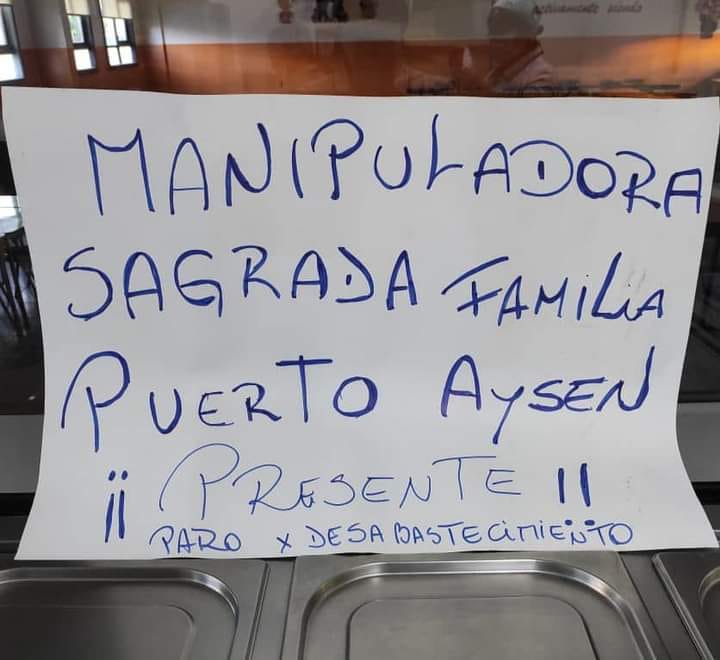 activamente siendo
MANIPULADORA
SAGRADA FAMILIA
PUERTO AYSEN
¡¡ PRESENTE !!
PARO x DESABASTECIMIENTO